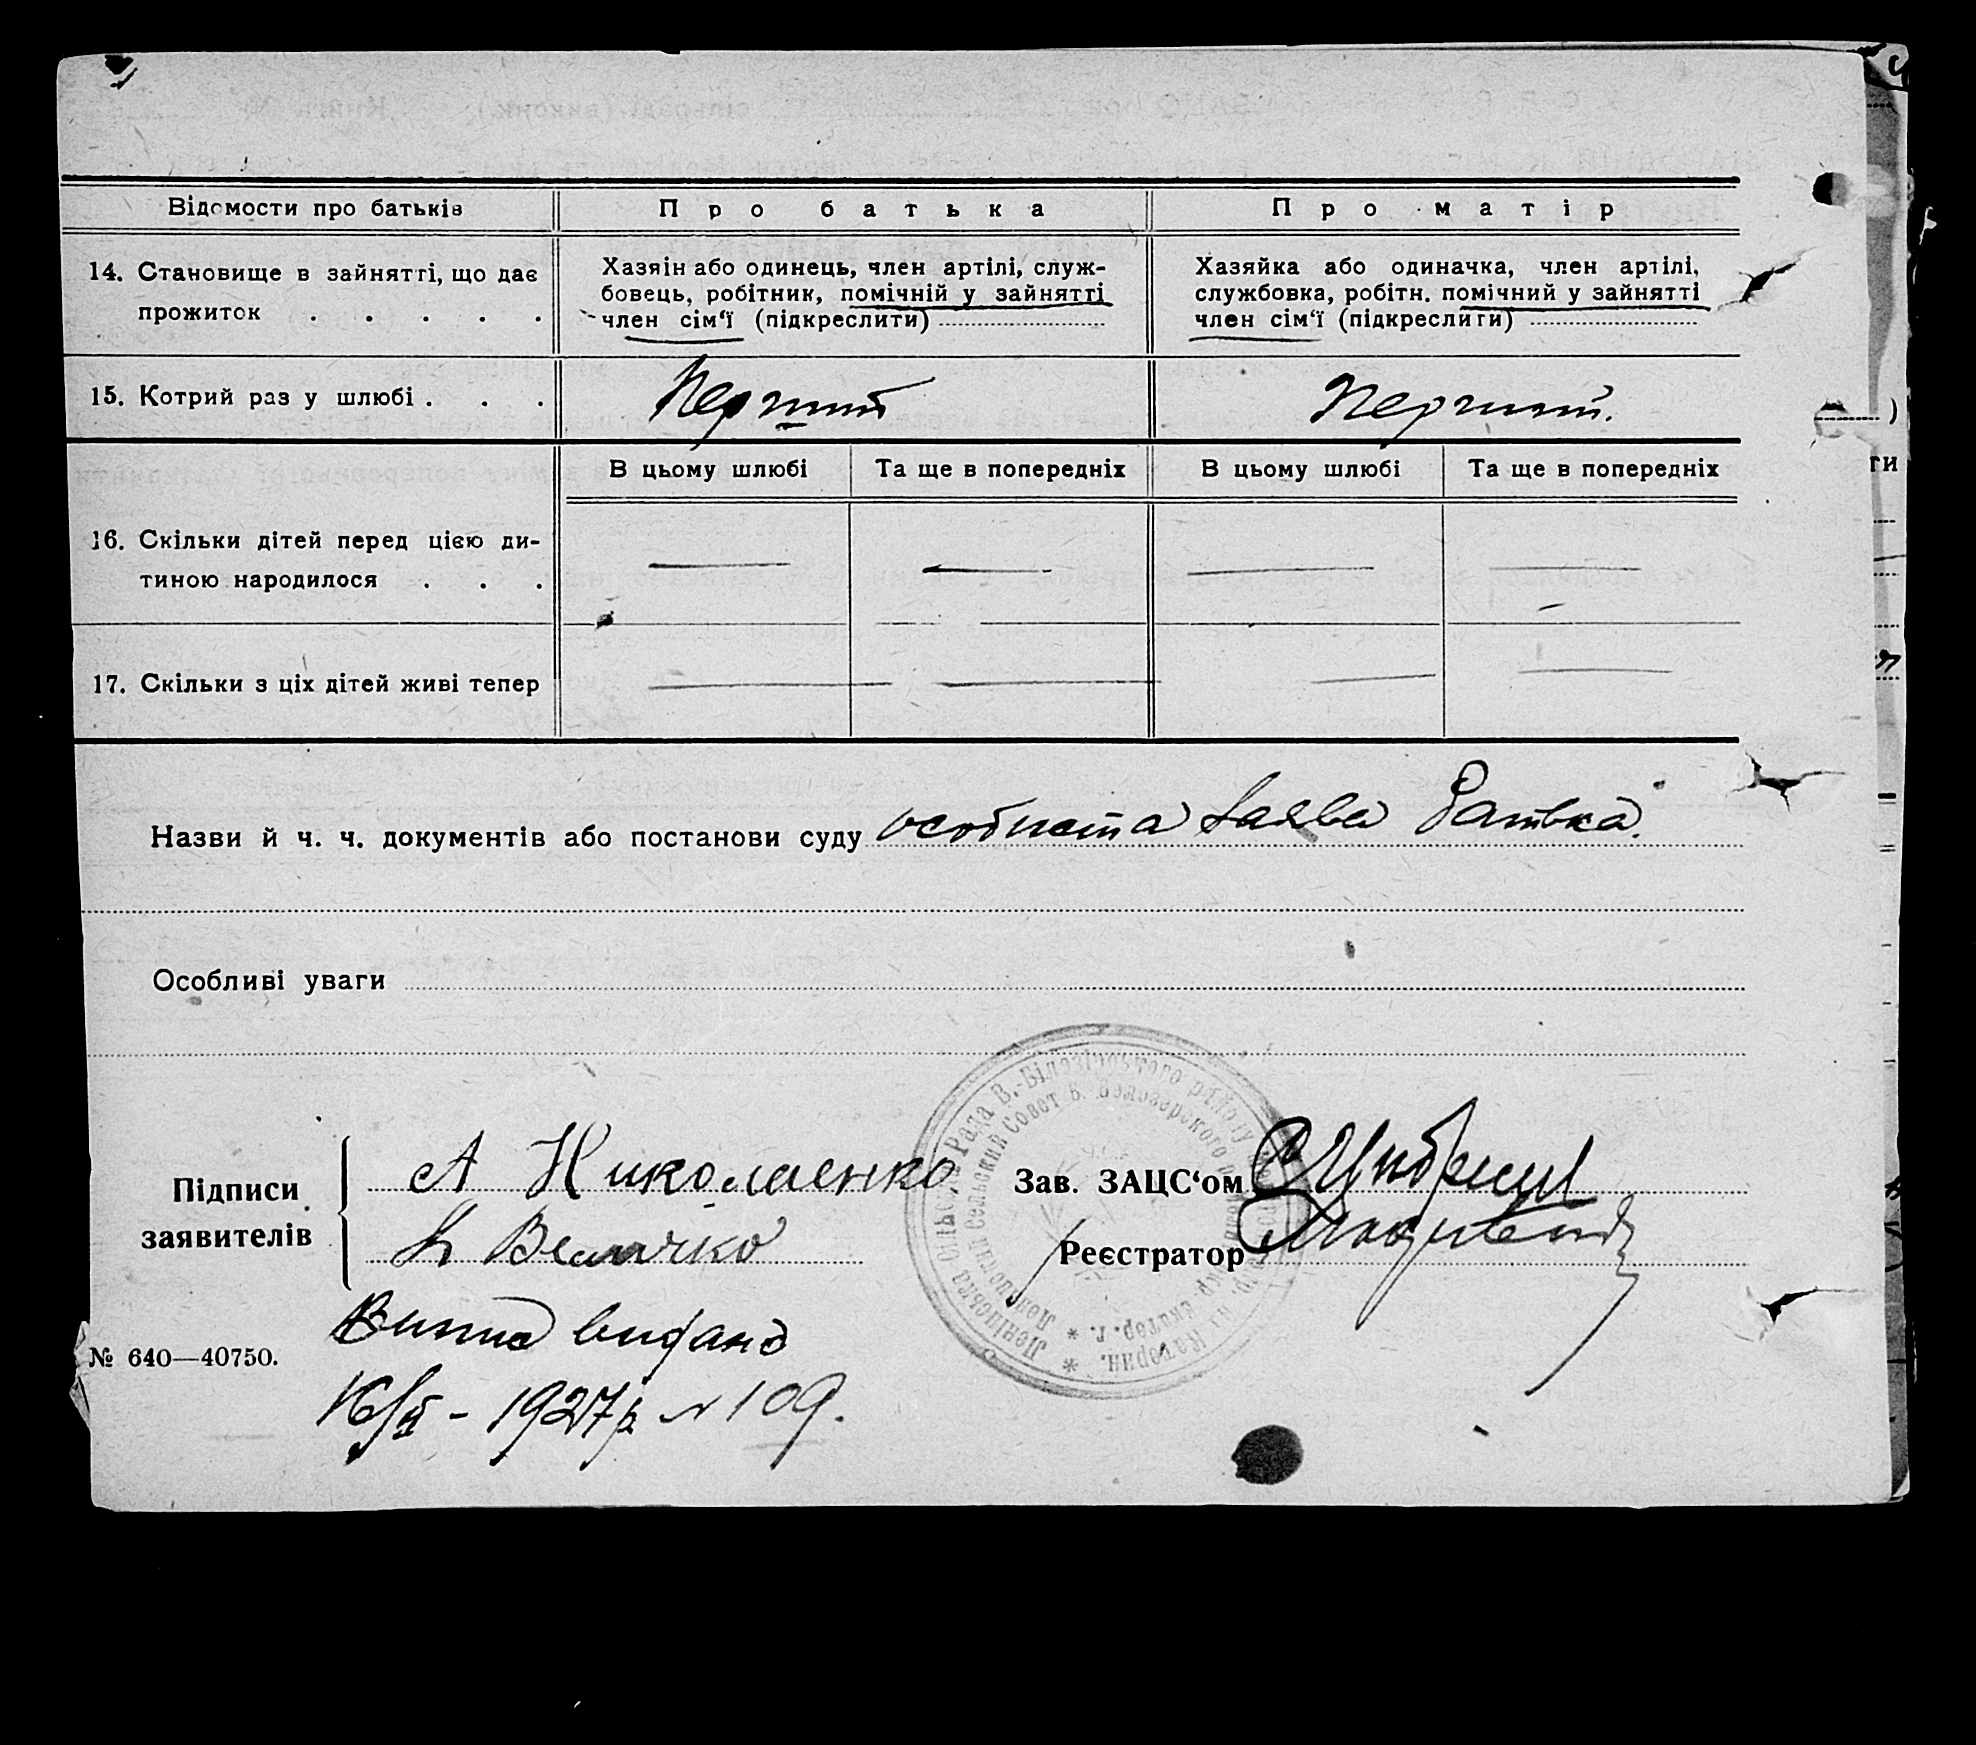 Відомости про батьків
Про батька
Про матір
14. Становище в зайнятті, що дає
прожиток . . . . .
Хазяїн або одинець, член артілі, служ-
бовець, робітник, помічній у зайнятті
член сім‘ї (підкреслити)
Хазяйка або одиначка, член артілі,
службовка, робітн. помічний у зайнятті
член сім‘ї (підкреслити)
15. Котрий раз у шлюбі . . .
Перший
Перший.
В цьому шлюбі
Та ще в попередніх
В цьому шлюбі
Та ще в попередніх
16. Скільки дітей перед цією ди-
тиною народилося . . .
17. Скільки з ціх дітей живі тепер
Назви й ч. ч. документів або постанови суду особиста заява батька.
Особливі уваги
Підписи
заявителів
А Николаенко
Величко
Зав. ЗАЦС‘ом
Реєстратор
Рада В.-Білозірського району
Сельский Совет В. Белозерского
Випис видано
16/ - 1927р № 109.
№ 640—40750.